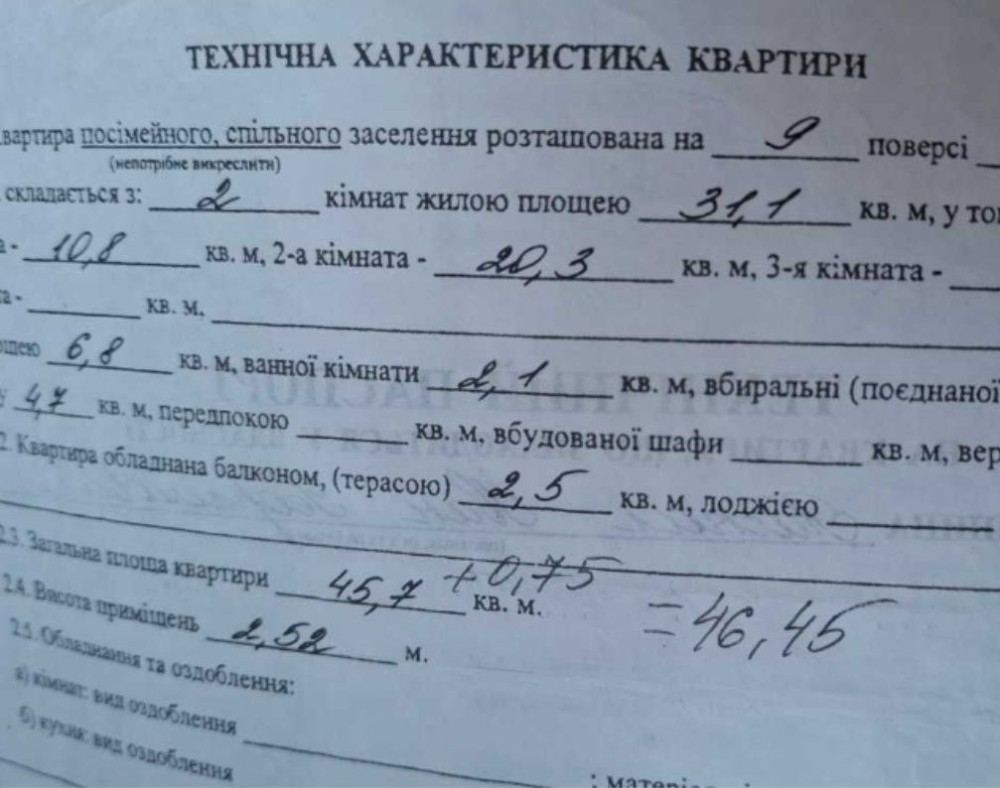 ТЕХНІЧНА ХАРАКТЕРИСТИКА КВАРТИРИ
вартира посімейного, спільного заселення розташована на 9 поверсі
(непотрібне викреслити)
складається з: 2 кімнат жилою площею 31,1 кв. м, у то
а - 10,8 кв. м, 2-а кімната - 20,3 кв. м, 3-я кімната -
та - кв. м,
щею 6,8 кв. м, ванної кімнати 2,1 кв. м, вбиральні (поєднаної
у 4,7 кв. м, передпокою кв. м, вбудованої шафи кв. м, вер
2. Квартира обладнана балконом, (терасою) 2,5 кв. м, лоджією
2.3. Загальна площа квартири 45,7 +0,75 кв. м. =46,45
2.4. Висота приміщень 2,52 м.
2.5. Обладнання та оздоблення:
а) кімнат: вид оздоблення
б) кухня: вид оздоблення